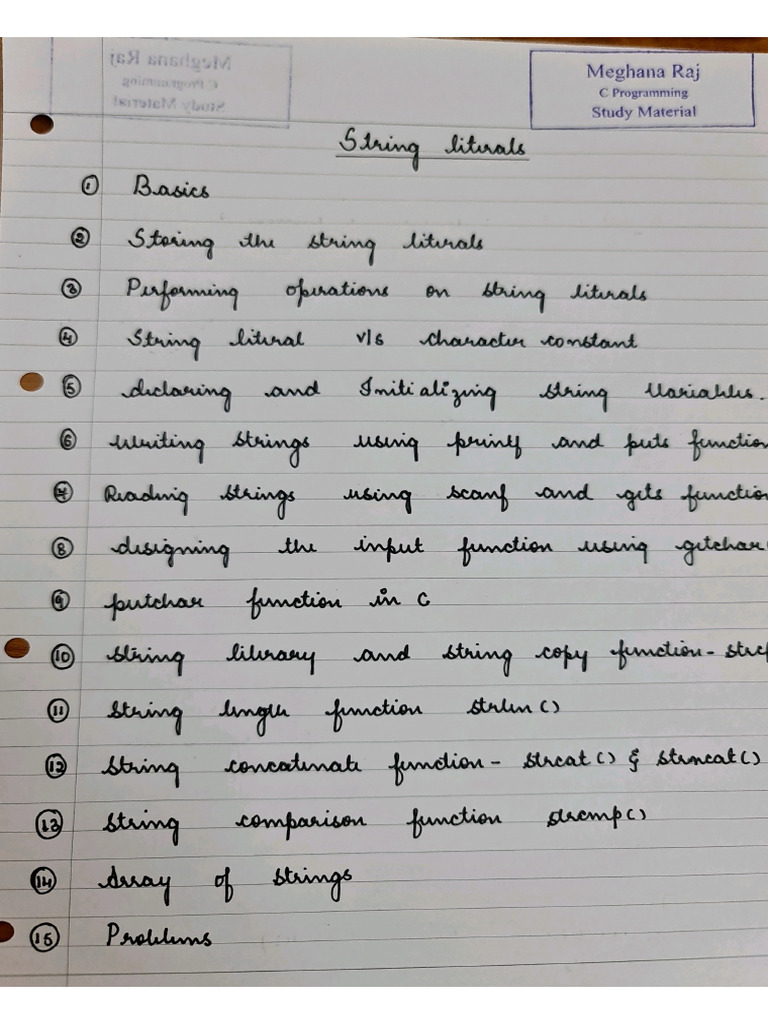 Meghana Raj
C Programming
Study Material
String literals
① Basics
② Storing the string literals
③ Performing operations on string literals
④ String literal v/s character constant
⑤ declaring and Initializing string Variables.
⑥ Writing strings using printf and puts function
⑦ Reading strings using scanf and gets function
⑧ designing the input function using getchar
⑨ putchar function in C
⑩ string library and string copy function - strcp
⑪ String length function strlen()
⑫ string concatenate function - strcat() & strncat()
⑬ string comparison function strcmp()
⑭ Array of strings
⑮ Problems